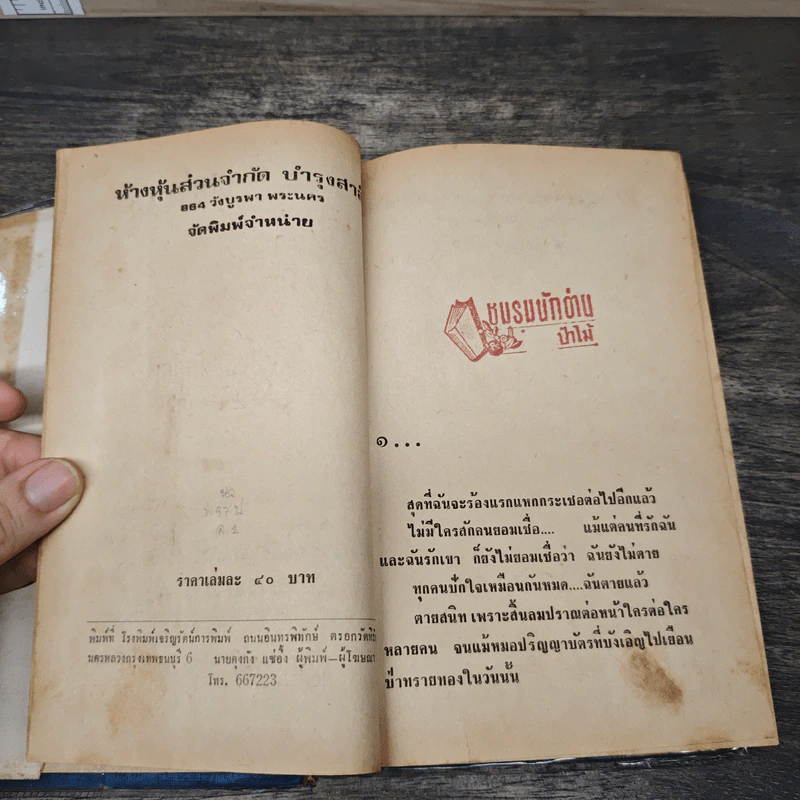 ห้างหุ้นส่วนจำกัด บำรุงสา
864 วังบูรพา พระนคร
จัดพิมพ์จำหน่าย
ราคาเล่มละ ๔๐ บาท
พิมพ์ที่ โรงพิมพ์เจริญรัตน์การพิมพ์ ถนนอินทรพิทักษ์ ตรอกวัด
นครหลวงกรุงเทพธนบุรี 6 นายคุงกัง แซ่อึ้ง ผู้พิมพ์—ผู้โฆษณา
โทร. 667223
ชมรมนักอ่าน
ป่าไม้
๑...
สุดที่ฉันจะร้องแรกแหกกระเชอต่อไปอีกแล้ว
ไม่มีใครสักคนยอมเชื่อ.... แม้แต่คนที่รักฉัน
และฉันรักเขา ก็ยังไม่ยอมเชื่อว่า ฉันยังไม่ตาย
ทุกคนปักใจเหมือนกันหมด....ฉันตายแล้ว
ตายสนิท เพราะสิ้นลมปราณต่อหน้าใครต่อใคร
หลายคน จนแม้หมอปริญญาบัตรที่บังเอิญไปเยือน
ป่าทรายทองในวันนั้น